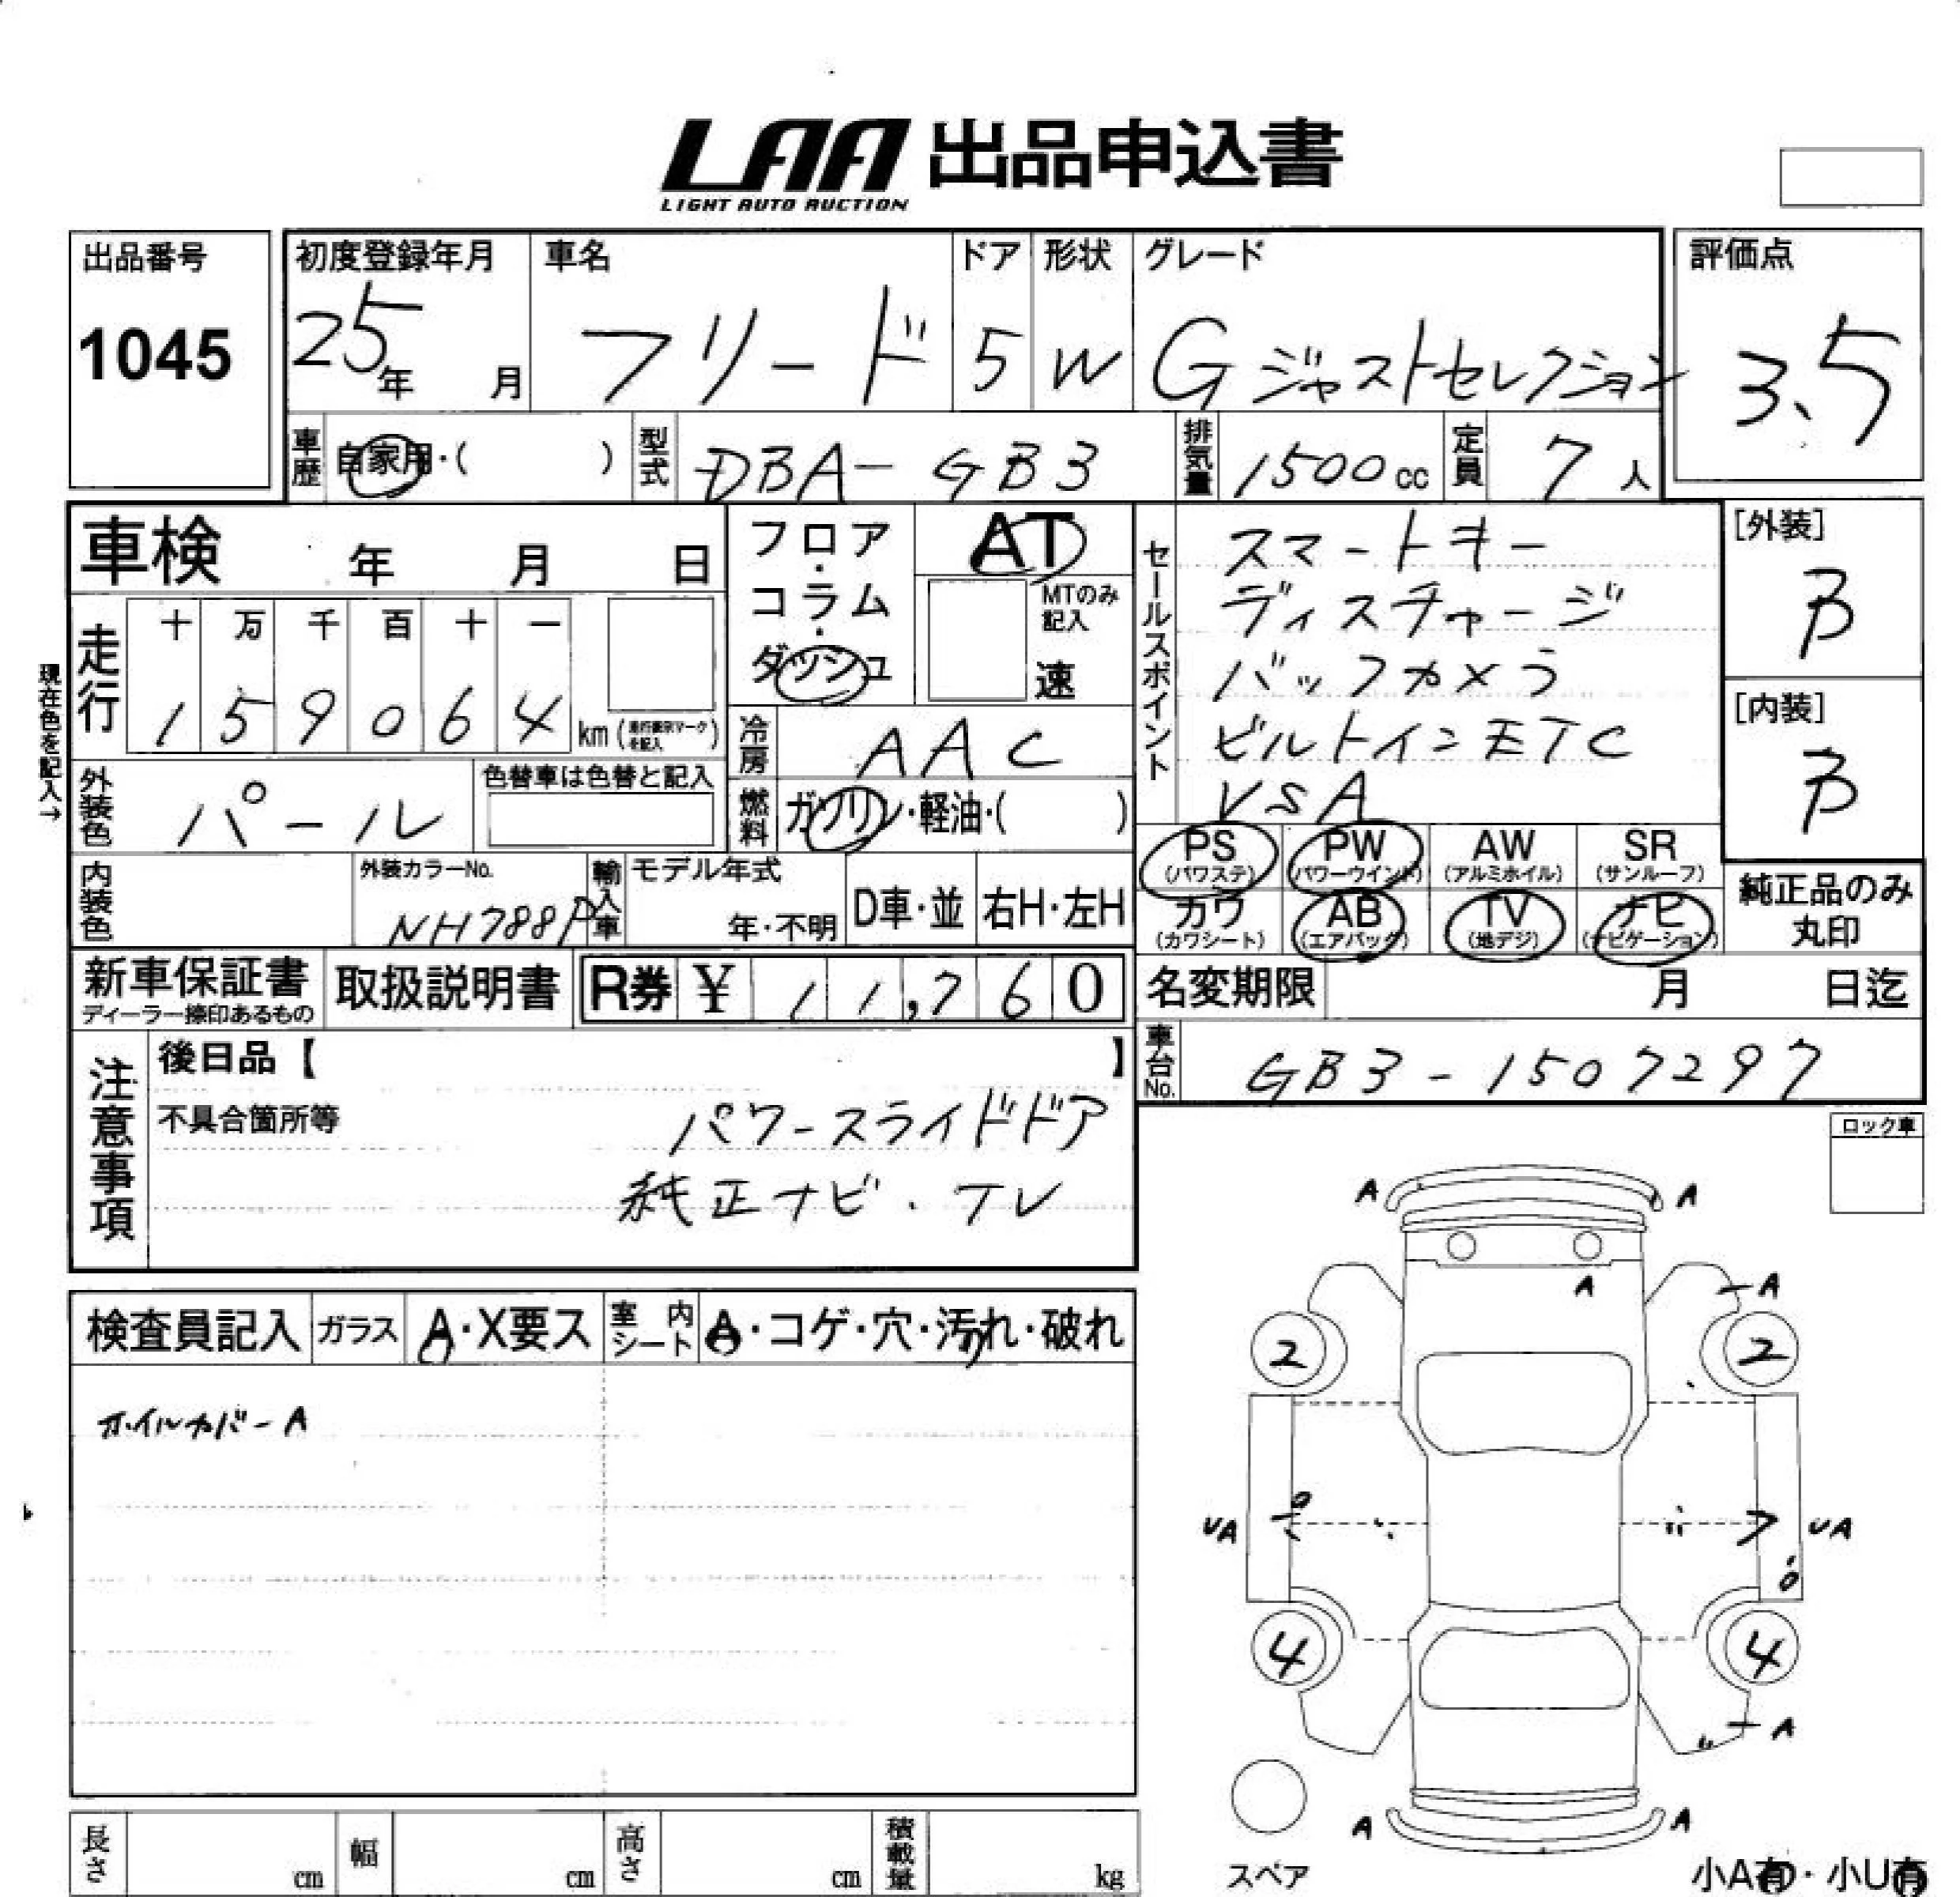 LAA 出品申込書
LIGHT AUTO AUCTION
出品番号
1045
初度登録年月
25年 月
車名
フリード
ドア
5
形状
W
グレード
G ジャストセレクション
評価点
3.5
車歴 自家用・( )
型式 DBA-GB3
排気量 1500cc
定員 7人
車検 年 月 日
フロア・コラム・ダッシュ
AT
MTのみ記入
速
走行
十 万 千 百 十 一
1 5 9 0 6 4 km (走行表示マークを記入)
現在色を記入→
冷房 AAC
外装色 パール
色替車は色替と記入
燃料 ガソリン・軽油・( )
セールスポイント
スマートキー
ディスチャージ
バックカメラ
ビルトインETC
VSA
[外装]
B
[内装]
B
PS (パワステ)
PW (パワーウインド)
AW (アルミホイル)
SR (サンルーフ)
カワ (カワシート)
AB (エアバック)
TV (地デジ)
ナビ (ナビゲーション)
純正品のみ丸印
内装色
外装カラーNo.
NH788P
輸入車
モデル年式
年・不明
D車・並
右H・左H
新車保証書
ディーラー捺印あるもの
取扱説明書
R券 ¥ 11,760
名変期限 月 日迄
車台No. GB3-1507297
注意事項
後日品【 】
不具合箇所等
パワースライドドア
純正ナビ・TV
ロック車
検査員記入
ガラス A・X要ス
室内シート A・コゲ・穴・汚れ・破れ
ホイルカバーA
A A
A
A
2 2
UA UA
4 4
A
A A
スペア
小A有・小U有
長さ cm
幅 cm
高さ cm
積載量 kg